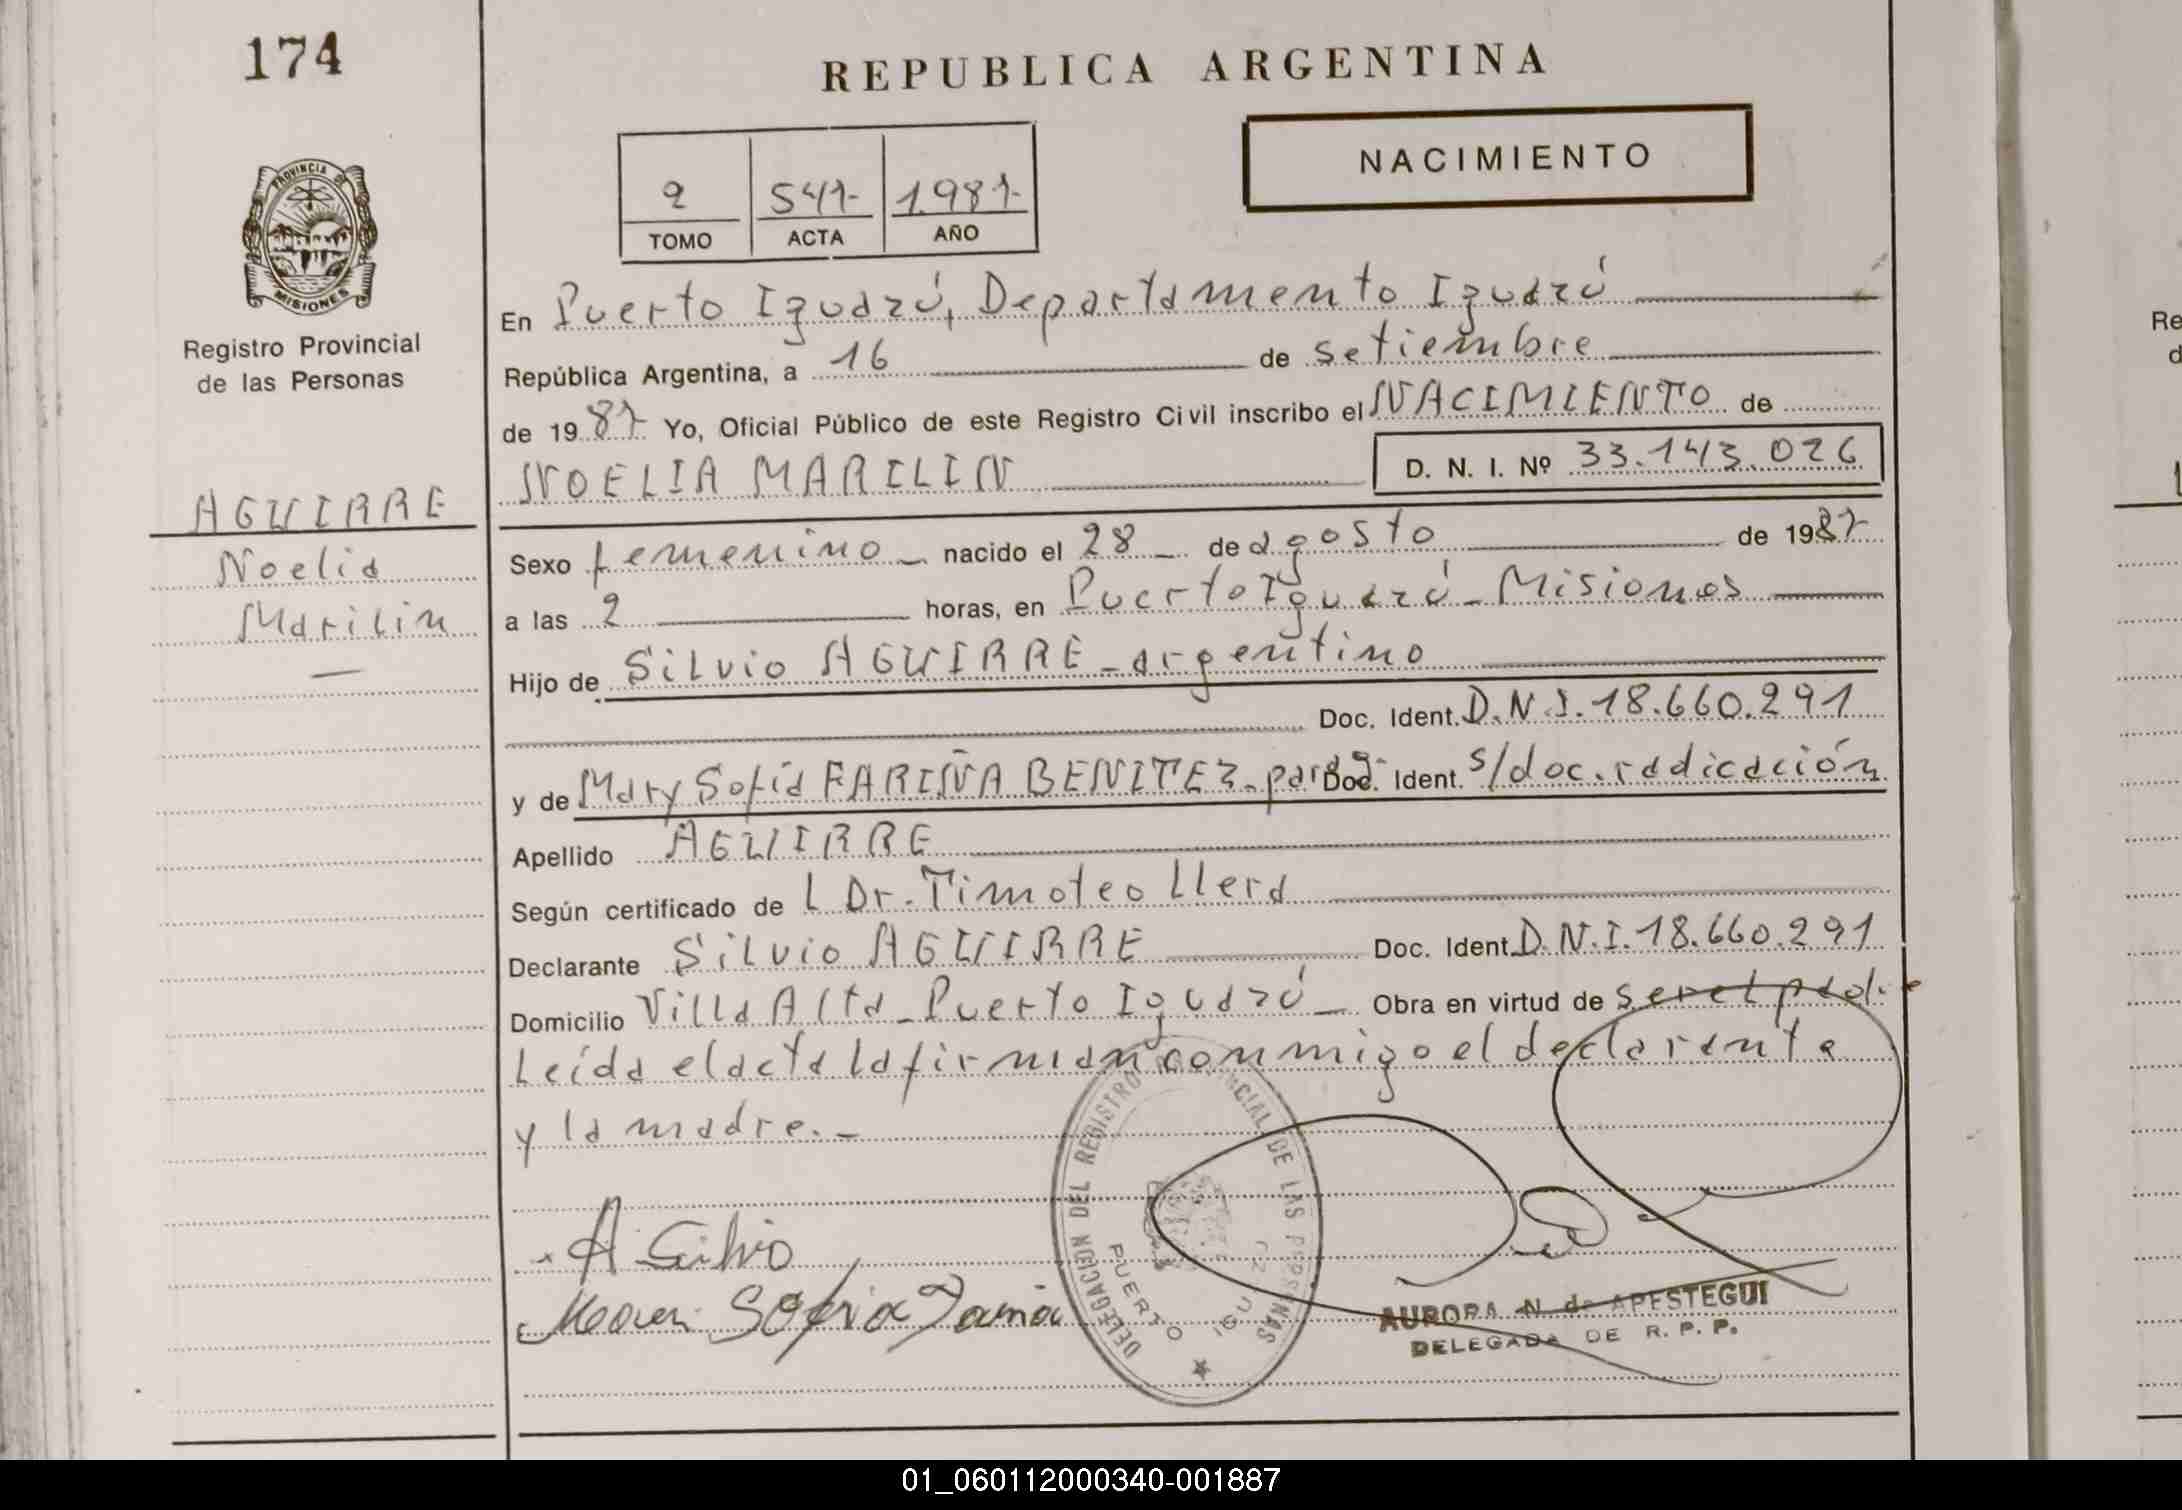 174
REPUBLICA ARGENTINA
NACIMIENTO
2 547- 1.987-
TOMO ACTA AÑO
PROVINCIA DE
MISIONES
Registro Provincial
de las Personas
AGUIRRE
Noelia
Marilin
En Puerto Iguazú, Departamento Iguazú
República Argentina, a 16 de setiembre
de 1987- Yo, Oficial Público de este Registro Civil inscribo el NACIMIENTO de
NOELIA MARILIN D. N. I. Nº 33.143.026
Sexo femenino nacido el 28 de agosto de 1987-
a las 2 horas, en Puerto Iguazú - Misiones
Hijo de Silvio AGUIRRE - argentino
Doc. Ident. D.N.I. 18.660.291
y de Mary Sofia FARIÑA BENITEZ - parag- Doc. Ident. s/doc. radicación
Apellido AGUIRRE
Según certificado de L Dr. Timoteo Llera
Declarante Silvio AGUIRRE Doc. Ident. D.N.I. 18.660.291
Domicilio Villa Alta - Puerto Iguazú - Obra en virtud de ser el padre
Leída el acta la firman conmigo el declarante
y la madre.-
A Silvio
Sofia
DELEGACION DEL REGISTRO PROVINCIAL DE LAS PERSONAS
PUERTO
AURORA N. de APESTEGUI
DELEGADA DE R. P. P.
Re
d
01_060112000340-001887